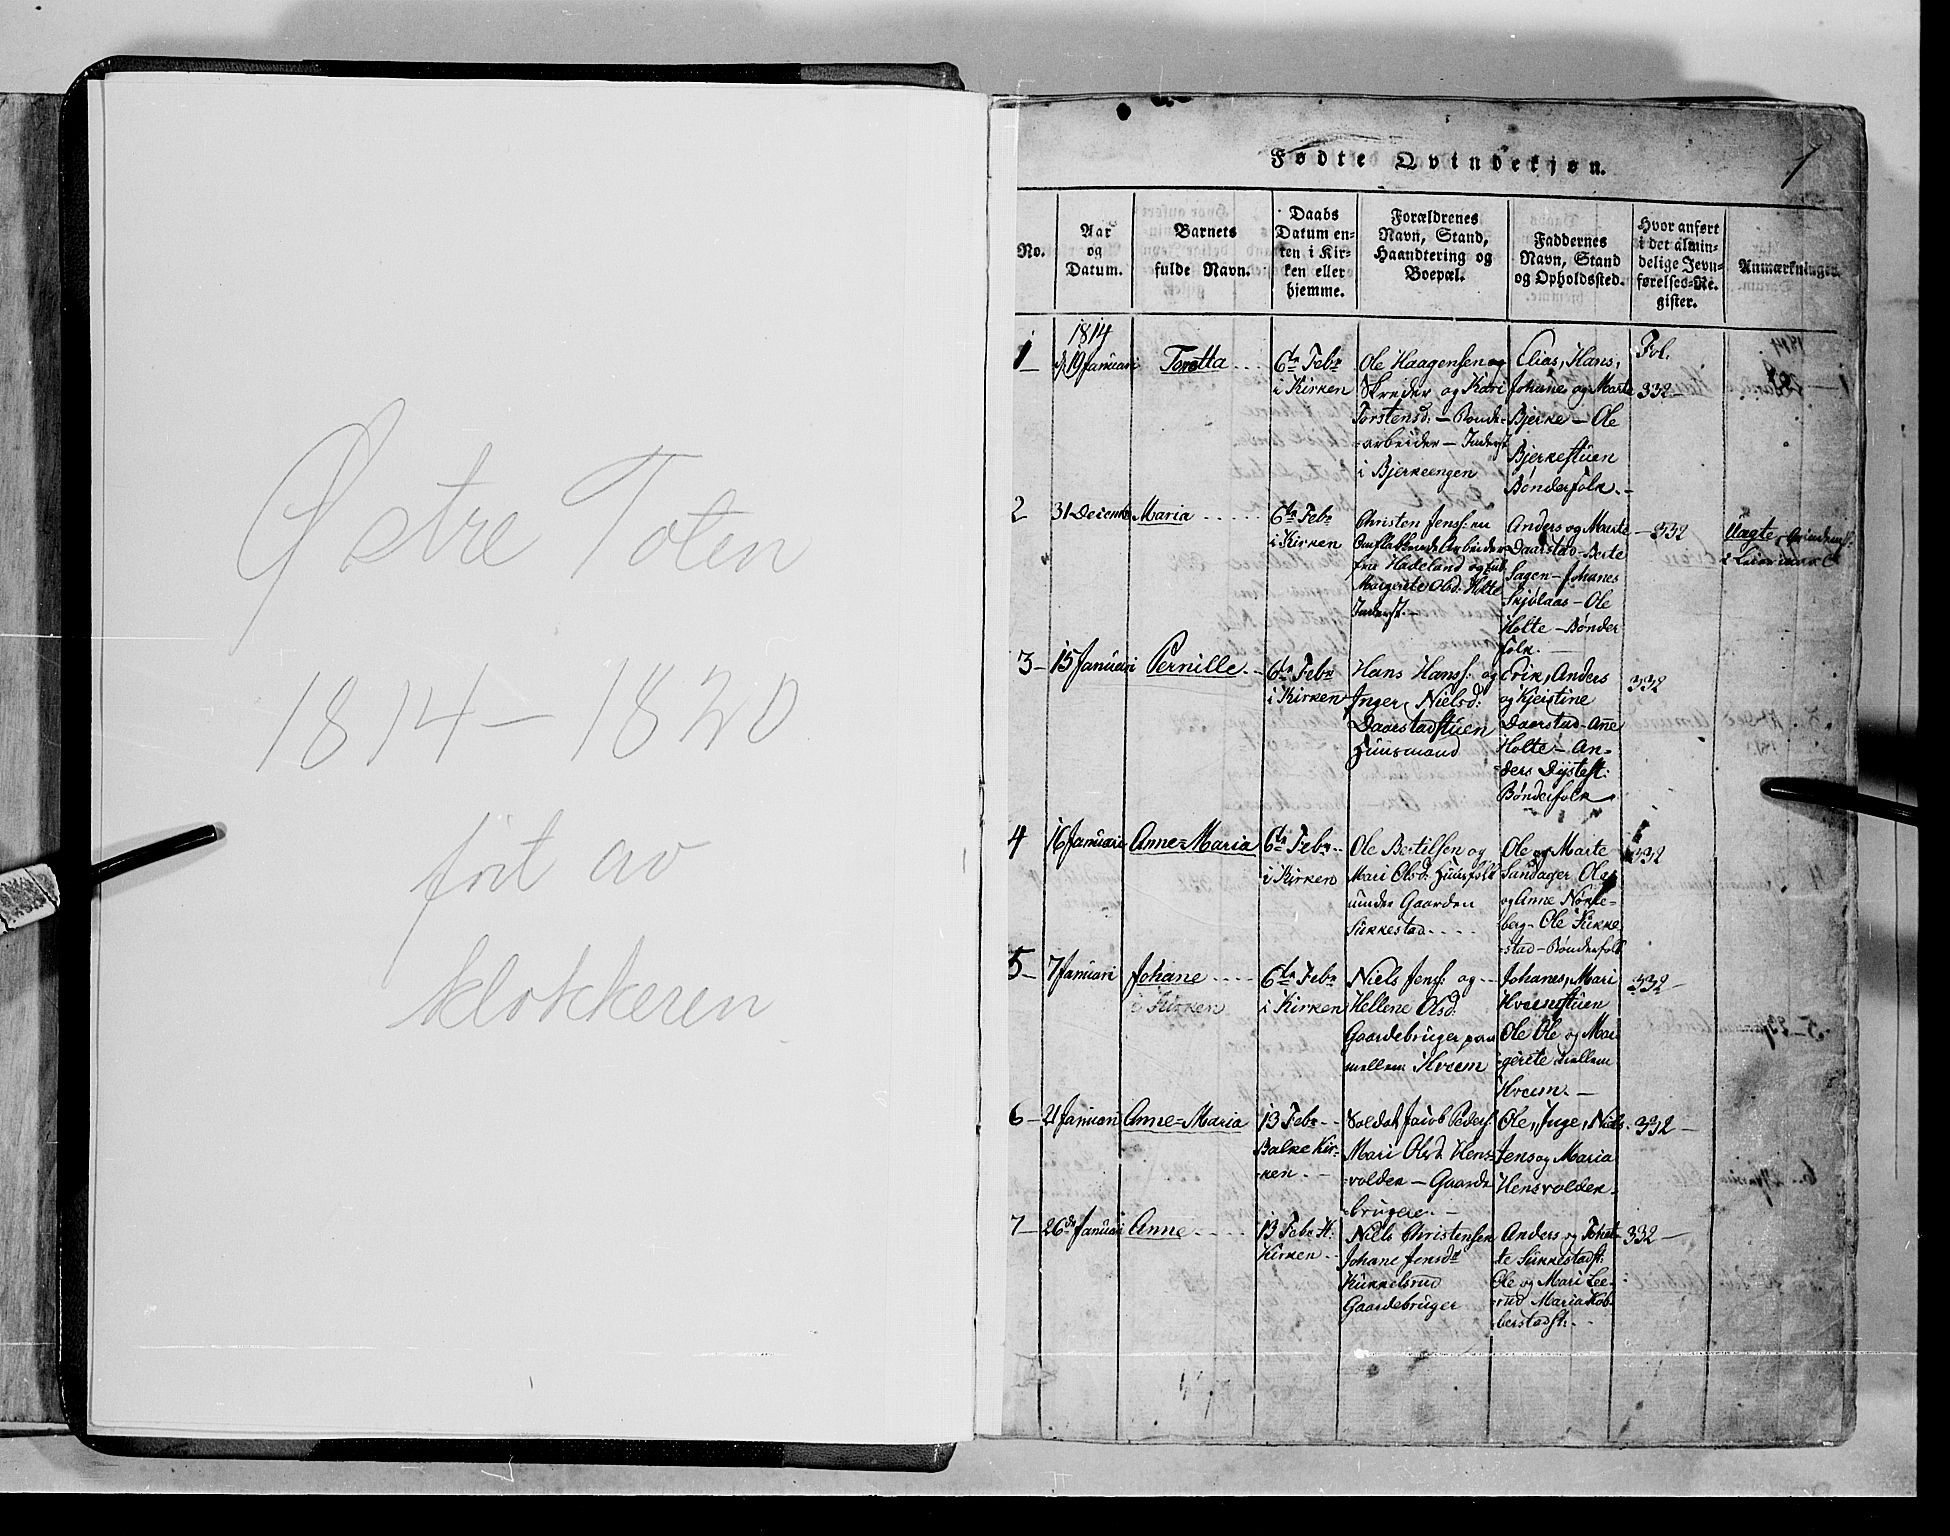 Østre Toten
1814-1820
ført av
klokkeren
Fødte Qvindekjøn.
No.
Aar
og
Datum.
Barnets
fulde Navn.
Daabs
Datum en-
ten i Kir-
ken eller
hjemme.
Forældrenes
Navn, Stand,
Haandtering og
Boepæl.
Faddernes
Navn, Stand
og Opholdssted.
Hvor anført
i det almin-
delige Jevn-
førelses-Re-
gister.
Anmærkninger.
1
1814
19 Januari
Toretta
6te Febr
i Kirken
Ole Haagensen og
Skreder og Kari
Torstensd: - Bonde-
-arbeider - Inderst
i Bjerkeengen
Elias, Hans,
Johane og Marte
Bjerke - Ole
Bjerkestuen
Bønderfolk. -
Fol.
332 -
2
31 Decemb
Maria
6te Febr
i Kirken
Christen Jens: en
Arbeider
fra Hadeland og
Margrete Olsd: Holte
Inderst. -
Anders og Marte
Daarstad - Berte
Sagen - Johanes
Skjølaas - Ole
Holte - Bønder
folk. -
- 332
Uægte
3 -
15 Januari
Pernille -
6te Febr
i Kirken
Hans Hans: og
Inger Nielsd:
Daarstadstuen
Huusmand
Erik, Anders
og Kjerstine
Daarstad - Ane
Holte - An-
ders Dystest:
Bønderfolk
332
4
16 Januari
Anne=Maria
6te Febr
i Kirken
Ole Bertelsen og
Mari Olsd: Huusfolk
under Gaarden
Sukkestad
Ole og Marte
Sandager Ole
og Anne Nøkle-
berg - Ole Sukke-
-stad - Bønderfolk
332
5 -
7 Januari
Johane
i Kirken
6te Febr
i Kirken
Niels Jens: og
Hellene Olsd:
Gaardebruger paa
mellem Hveem
Johanes, Mari
Hveemstuen
Ole Ole og Mar-
-grete mellem
Hveem. -
332 -
6 -
21 Januari
Anne=Maria
13 Febr
Balke Kir-
ken
Soldat Jacob Peders:
Mari Olsd: Hens-
-volden - Gaarde
-brugere. -
Ole, Inge, Niels
Jens og Maria
Hensvolden -
332 -
7 -
26de Januari
Anne
13 Febr H:
Kirken
Niels Christensen
Johane Jensdr
Kukkelsrud
Gaardebruger
Anders og
Sukkestadst:
Ole og Mari Lee-
-rud Maria Kob-
berstadst: -
332 -